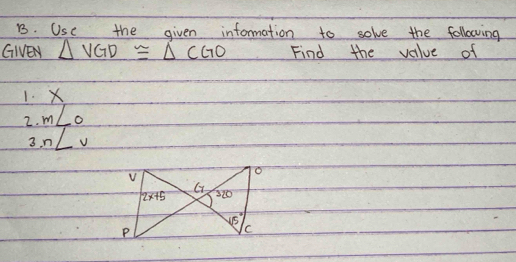 B. Use the given information to solve the following
GIVEN △ VGD ≅ △ CGO Find the value of
1. X
2. m∠O
3. n∠V
V O
2x+5 G 320
45°
P C